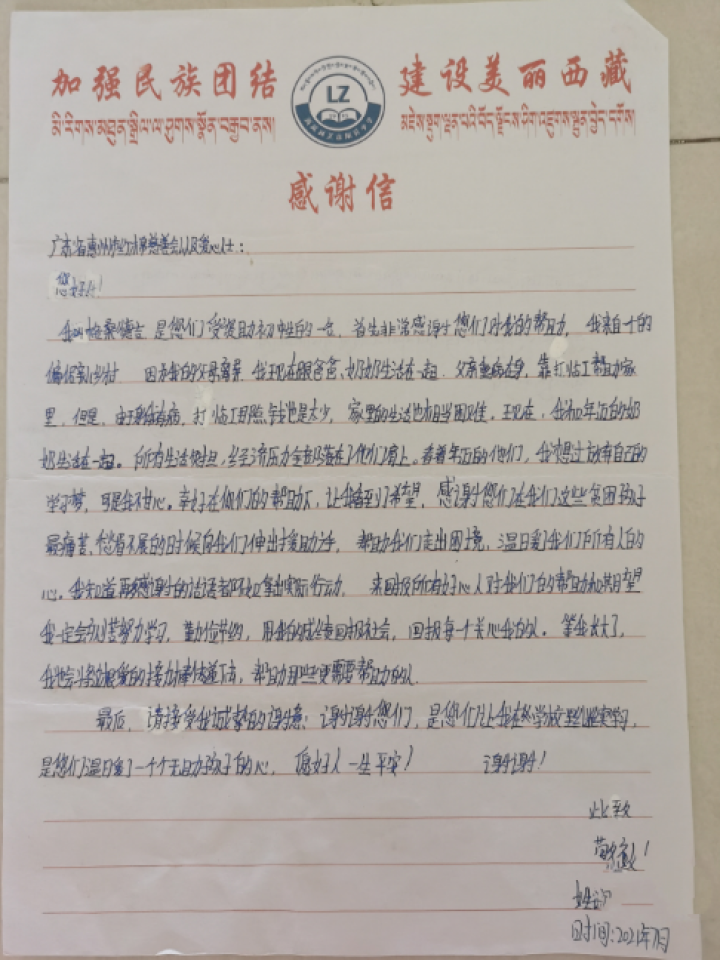 加强民族团结 LZ 建设美丽西藏
མི་རིགས་མཐུན་སྒྲིལ་ལ་ཤུགས་སྣོན་བརྒྱབ་ནས།
感谢信
广东省惠州市红 慈善会以及爱心人士:
您好!
是您们受资助初中生的一 首先非常感谢您们对我的帮助, 我来自
偏 乡村 因为我的父母离异 我现在跟爸爸、奶奶生活在一起. 父亲 身, 靠打临工帮助家
里, 但是, 由于身体有病, 打临工 钱也是太少, 家里的生活也相当困难。现在, 我和年迈的奶
奶生活在一起。 所有生活 经济压力全部落在了他们肩上。看着年迈的他们, 我想过放弃自己的
学习梦, 可是我不甘心。幸好在您们的帮助下, 让我看到了希望, 感谢您们在我们这些贫困孩子
最痛苦、愁眉不展的时候向我们伸出援助之手, 帮助我们走出困境, 温暖了我们所有人的
心。我知道再多感谢的话语都不如拿出实际行动, 来回报所有好心人对我们的帮助和期望
我一定会刻苦努力学习, 勤俭节约, 用我的成绩回报社会, 回报每一个关心我的人。等我长大了,
我也会将这 爱的接力棒传递下去, 帮助那些更需要帮助的人.
最后, 请接受我 的谢意: 谢谢您们, 是您们让我在 学校里 学习,
是您们温暖了一个个无助孩子的心, 愿好人一生平安! 谢谢!
此致
敬礼!
时间:2021年7月